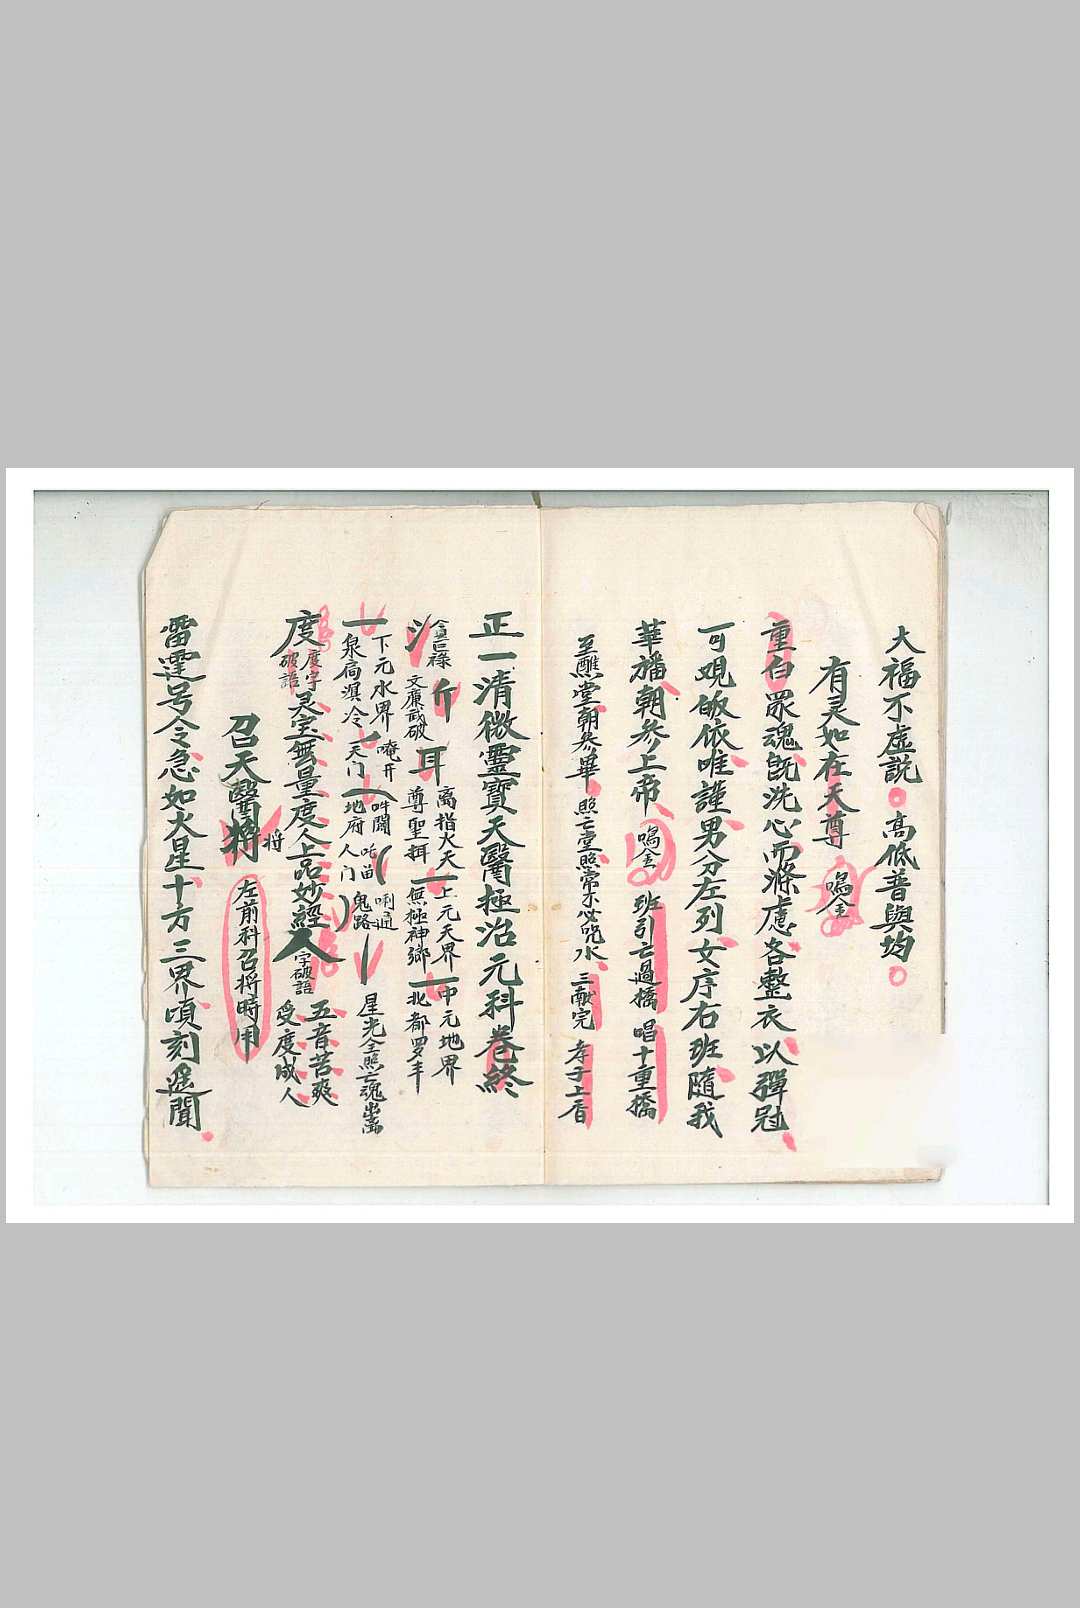 大福不虚説 高低普與均
有灵如在天尊 鳴金
重白眾魂既洗心而滌慮各整衣以彈冠
可覌皈依唯謹男分左列女序右班隨我
華旛朝參上帝 鳴金 班引亡過橋 唱十重橋
至醮堂朝參畢 照亡堂照常不必咒水 三献完 孝子上香
正一清微靈寶天醫極治元科卷終
禄 文廉武破 斤 耳 离指火天 尊聖 一上元天界 無極神鄉 一中元地界 北都罗丰
一下元水界 泉扃溟冷 唵开 天门 吽開 地府 吒苗 人门 唎通 鬼路 星光全照亡魂出离
度 度字破語 灵宝無量度人上品妙經 人 字破語 五音苦爽 受度成人
召天醫將 将 左前科召将時用
雷霆号令急如火星十方三界頃刻遥聞